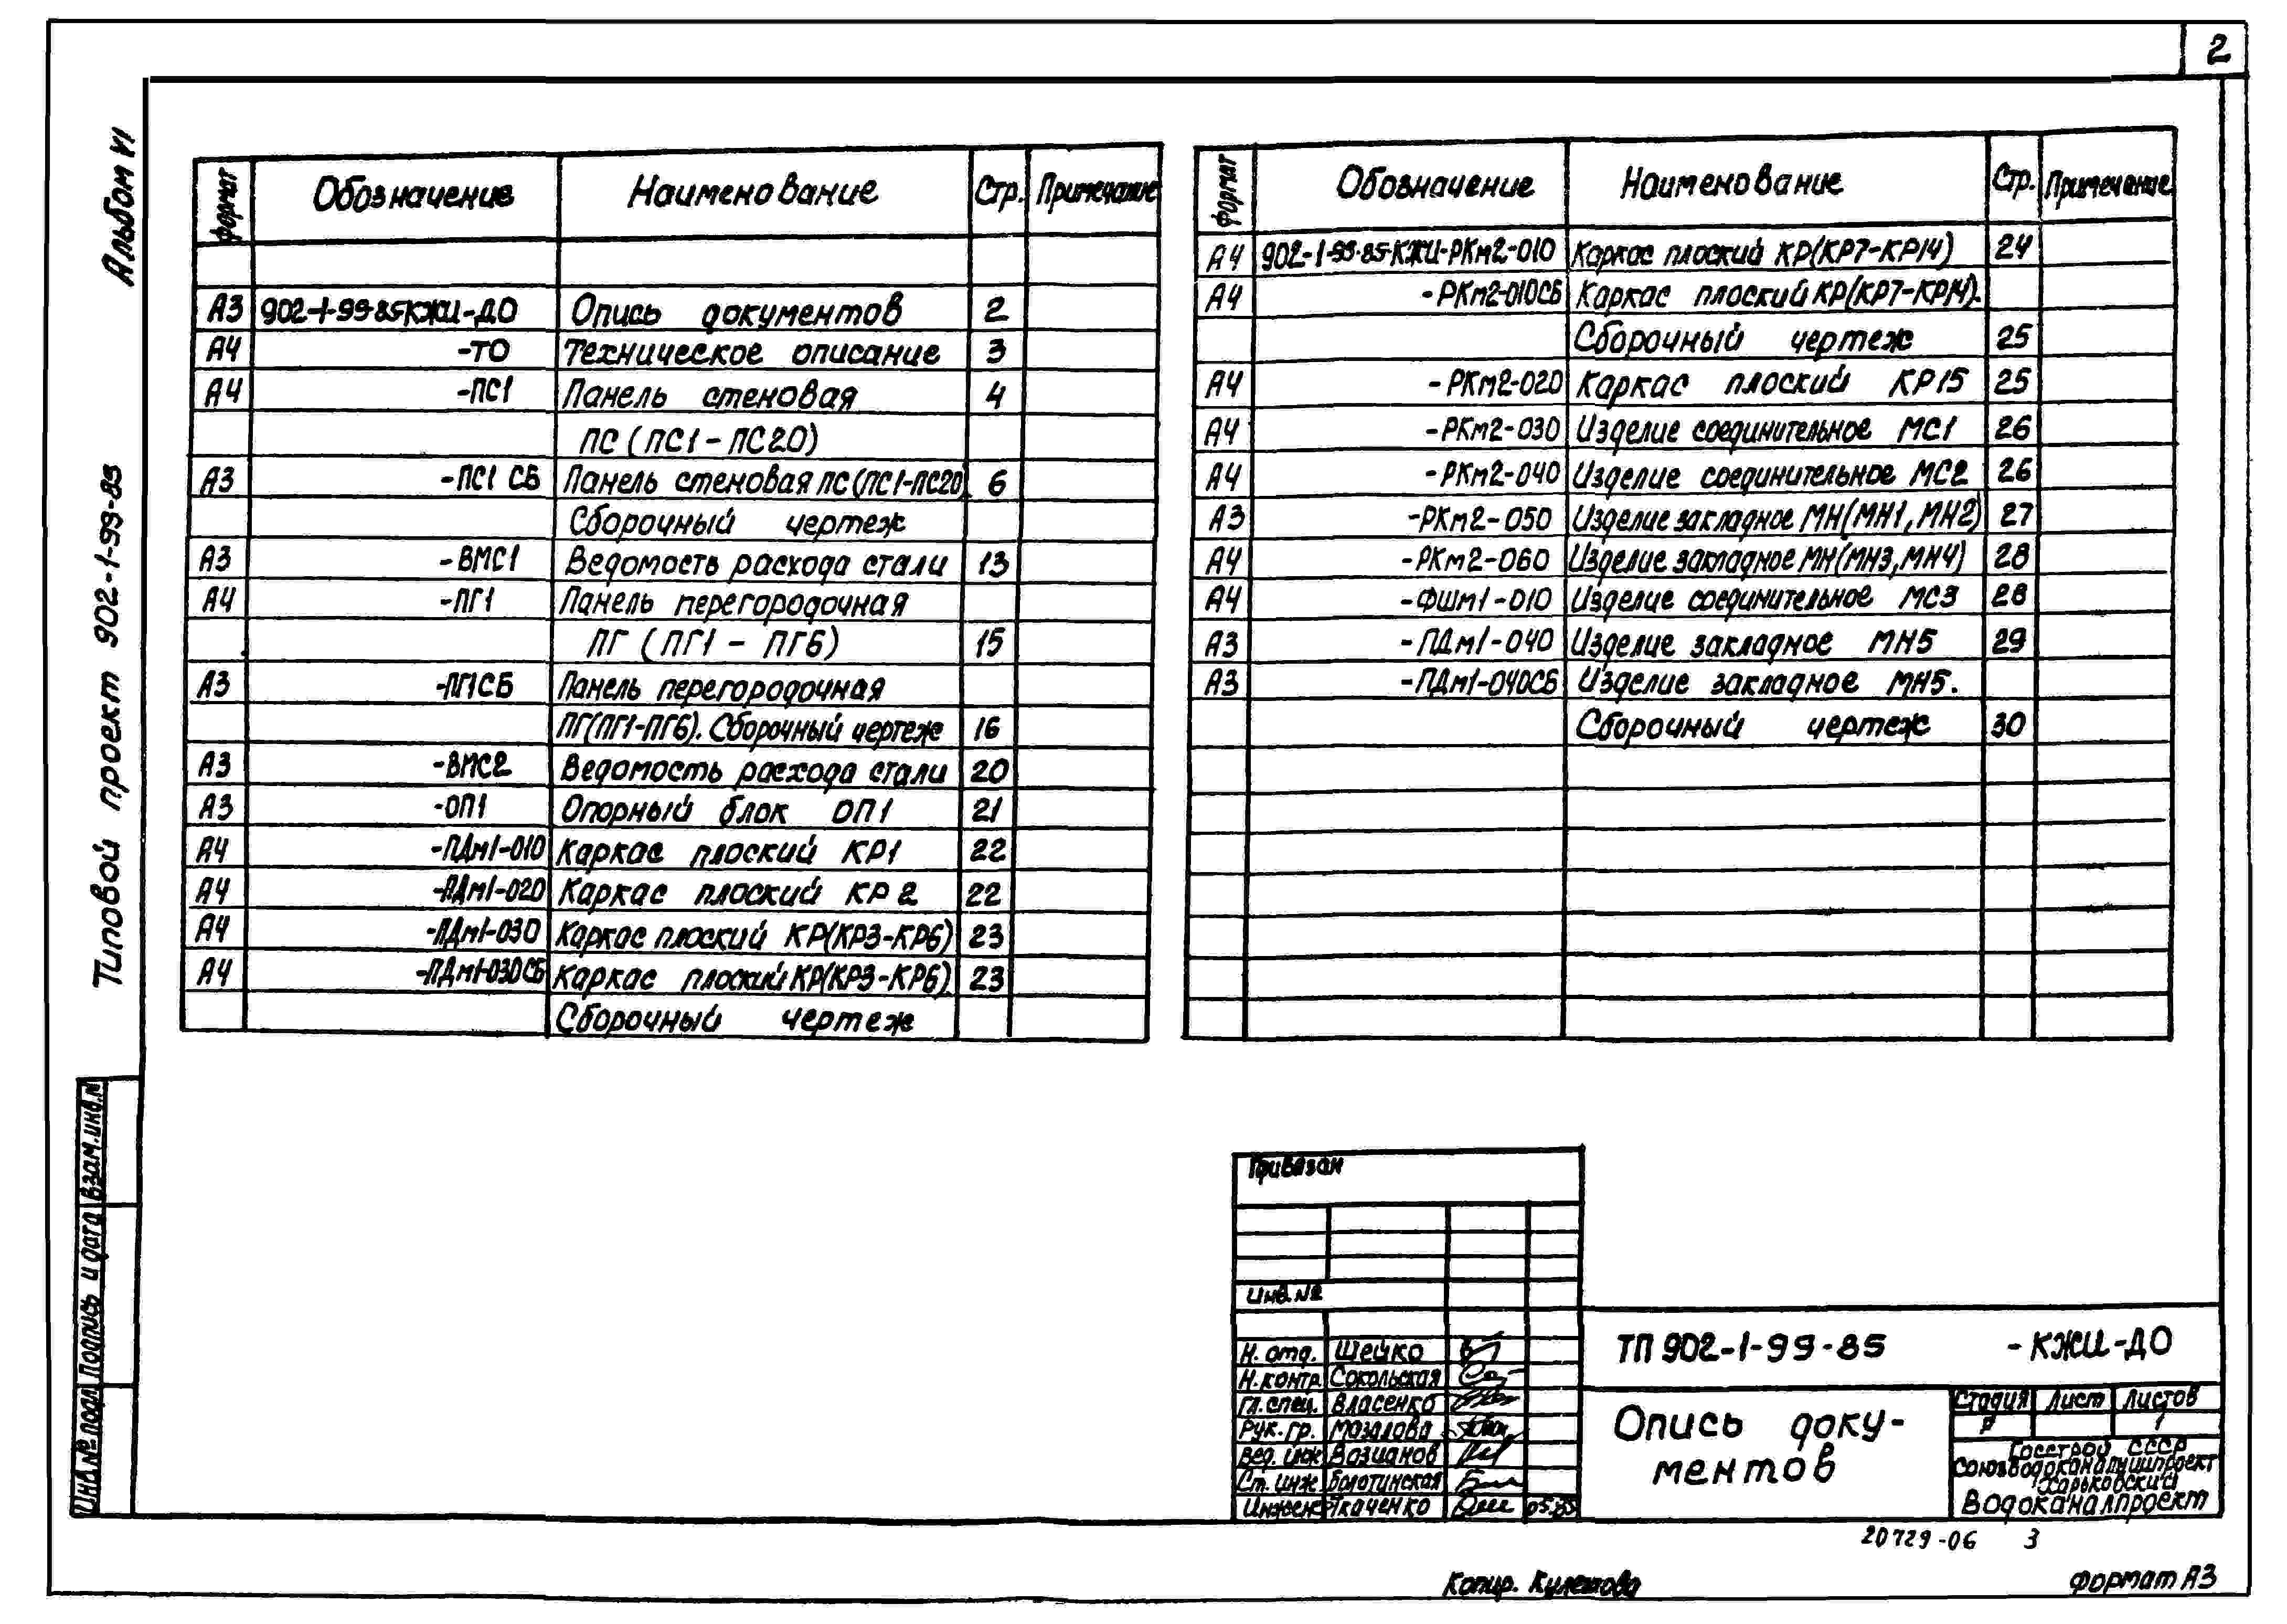 2
Альбом VI
Типовой проект 902-1-99-85
Формат Обозначение Наименование Стр. Примечание
А3 902-1-99-85КЖИ-ДО Опись документов 2
А4 -ТО Техническое описание 3
А4 -ПС1 Панель стеновая 4
ПС (ПС1-ПС20)
А3 -ПС1 СБ Панель стеновая ПС (ПС1-ПС20) 6
Сборочный чертеж
А3 -ВМС1 Ведомость расхода стали 13
А4 -ПГ1 Панель перегородочная
ПГ (ПГ1 - ПГ6) 15
А3 -ПГ1СБ Панель перегородочная
ПГ(ПГ1-ПГ6). Сборочный чертеж 16
А3 -ВМС2 Ведомость расхода стали 20
А3 -ОП1 Опорный блок ОП1 21
А4 -ПДм1-010 Каркас плоский КР1 22
А4 -ПДм1-020 Каркас плоский КР2 22
А4 -ПДм1-030 Каркас плоский КР(КР3-КР6) 23
А4 -ПДм1-030СБ Каркас плоский КР(КР3-КР6) 23
Сборочный чертеж
Формат Обозначение Наименование Стр. Примечание
А4 902-1-99-85-КЖИ-РКм2-010 Каркас плоский КР(КР7-КР14) 24
А4 -РКм2-010СБ Каркас плоский КР(КР7-КР14).
Сборочный чертеж 25
А4 -РКм2-020 Каркас плоский КР15 25
А4 -РКм2-030 Изделие соединительное МС1 26
А4 -РКм2-040 Изделие соединительное МС2 26
А3 -РКм2-050 Изделие закладное МН(МН1, МН2) 27
А4 -РКм2-060 Изделие закладное МН(МН3, МН4) 28
А4 -ФШм1-010 Изделие соединительное МС3 28
А3 -ПДм1-040 Изделие закладное МН5 29
А3 -ПДм1-040СБ Изделие закладное МН5.
Сборочный чертеж 30
Взам.инв.№
Подпись и дата
Инв.№ подл.
Привязан
Инв.№
Н. отд. Шейко
Н.контр. Сокольская
Гл.спец. Власенко
Рук.гр. Мазалова
Вед. инж Возианов
Ст. инж. Болотинская
Инжен. Ткаченко 05.85
ТП 902-1-99-85 -КЖИ-ДО
Опись доку-
ментов
Стадия Лист Листов
Р 1
Госстрой СССР
Союзводоканалниипроект
Харьковский
Водоканалпроект
20729-06 3
Копир. Кулешова
Формат А3